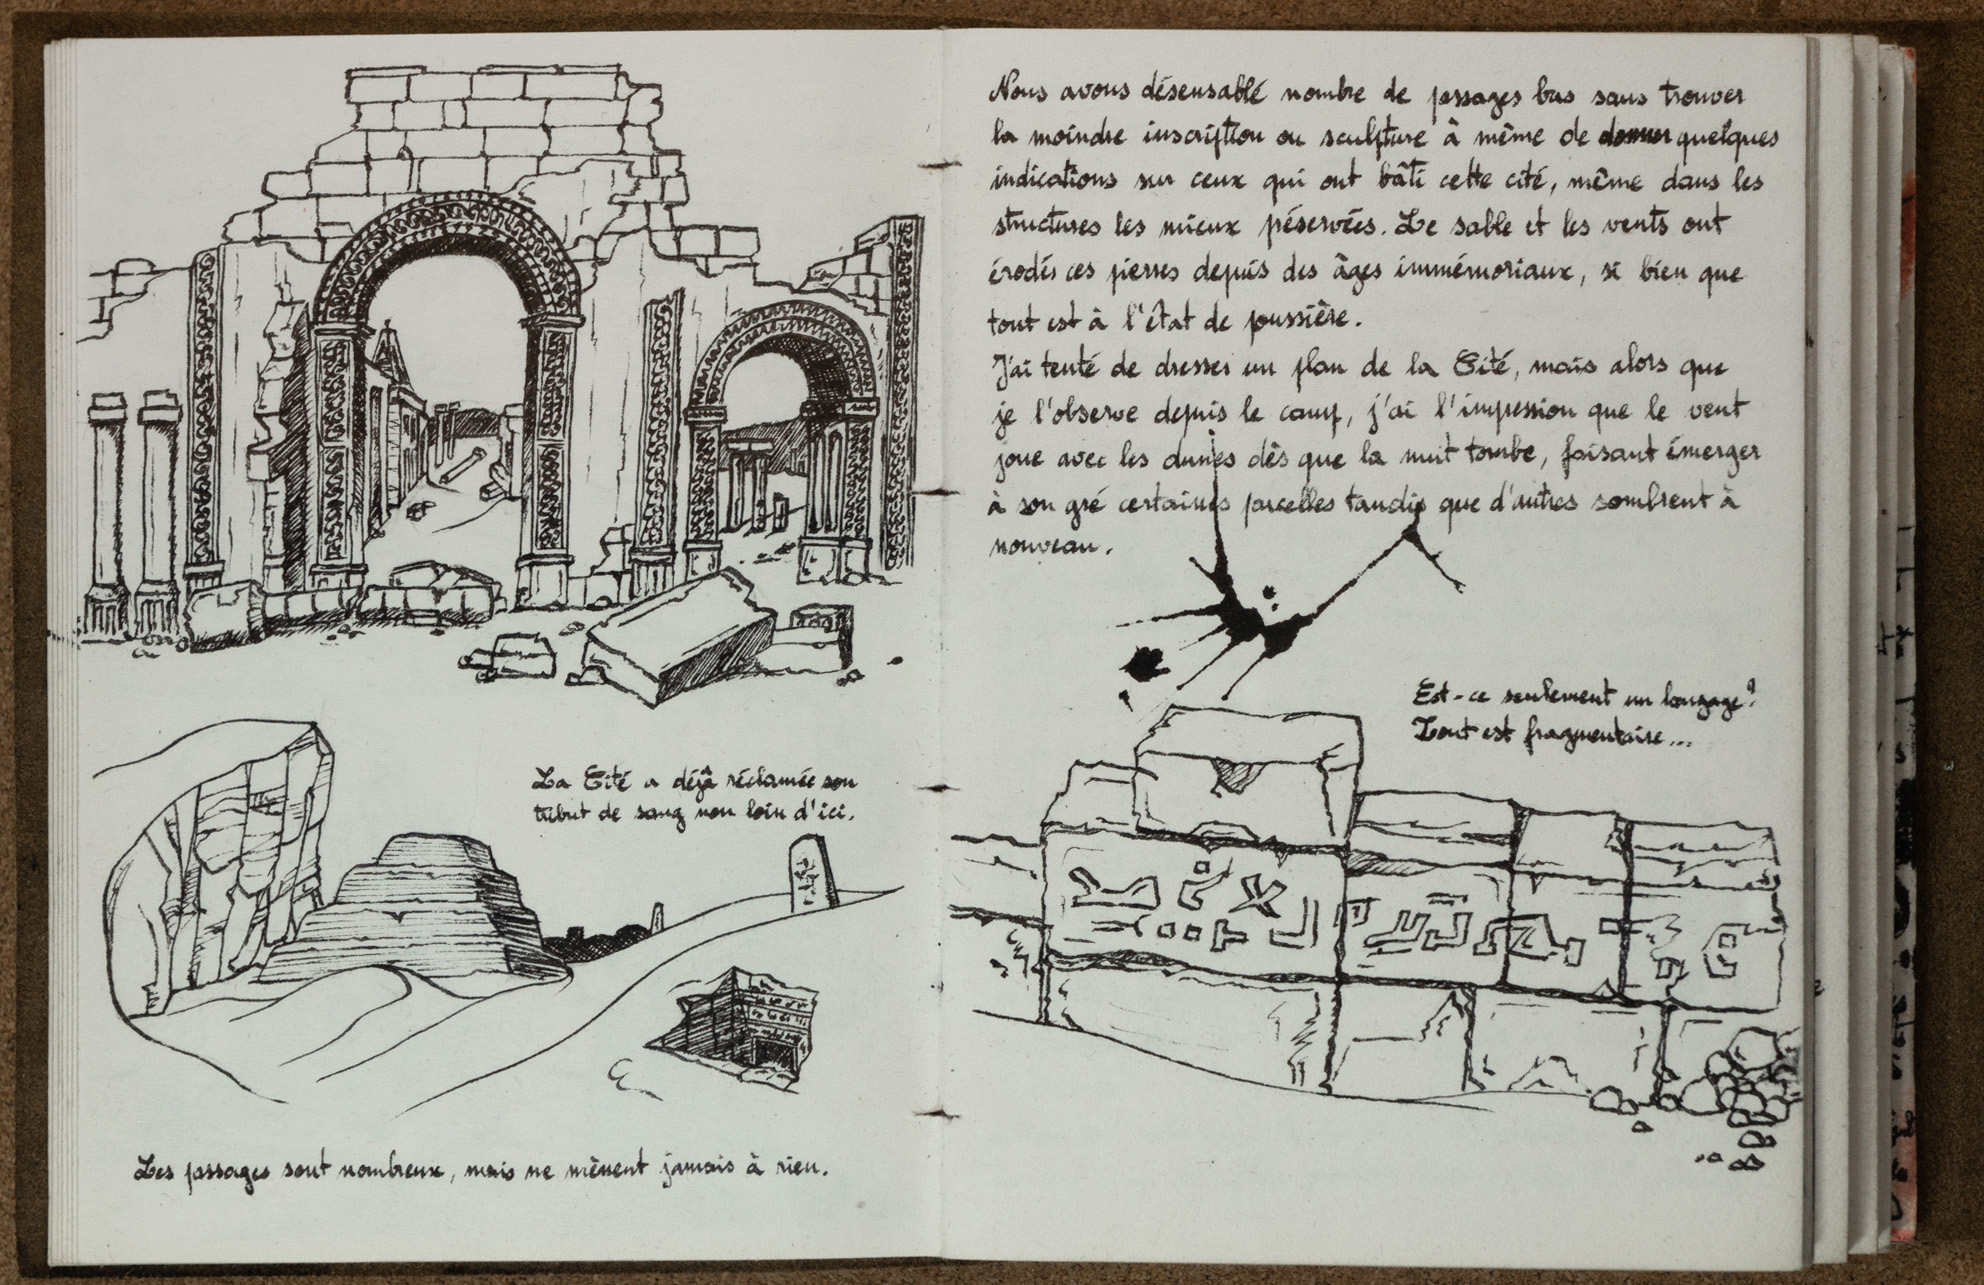 La Cité a déjà réclamée son
tribut de sang non loin d'ici.
Les passages sont nombreux, mais ne mènent jamais à rien.
Nous avons désensablé nombre de passages bas sans trouver
la moindre inscription ou sculpture à même de donner quelques
indications sur ceux qui ont bâti cette cité, même dans les
structures les mieux préservées. Le sable et les vents ont
érodés ces pierres depuis des âges immémoriaux, si bien que
tout est à l'état de poussière.
J'ai tenté de dresser un plan de la Cité, mais alors que
je l'observe depuis le camp, j'ai l'impression que le vent
joue avec les dunes dès que la nuit tombe, faisant émerger
à son gré certaines parcelles tandis que d'autres sombrent à
nouveau.
Est-ce seulement un langage?
Tout est fragmentaire...